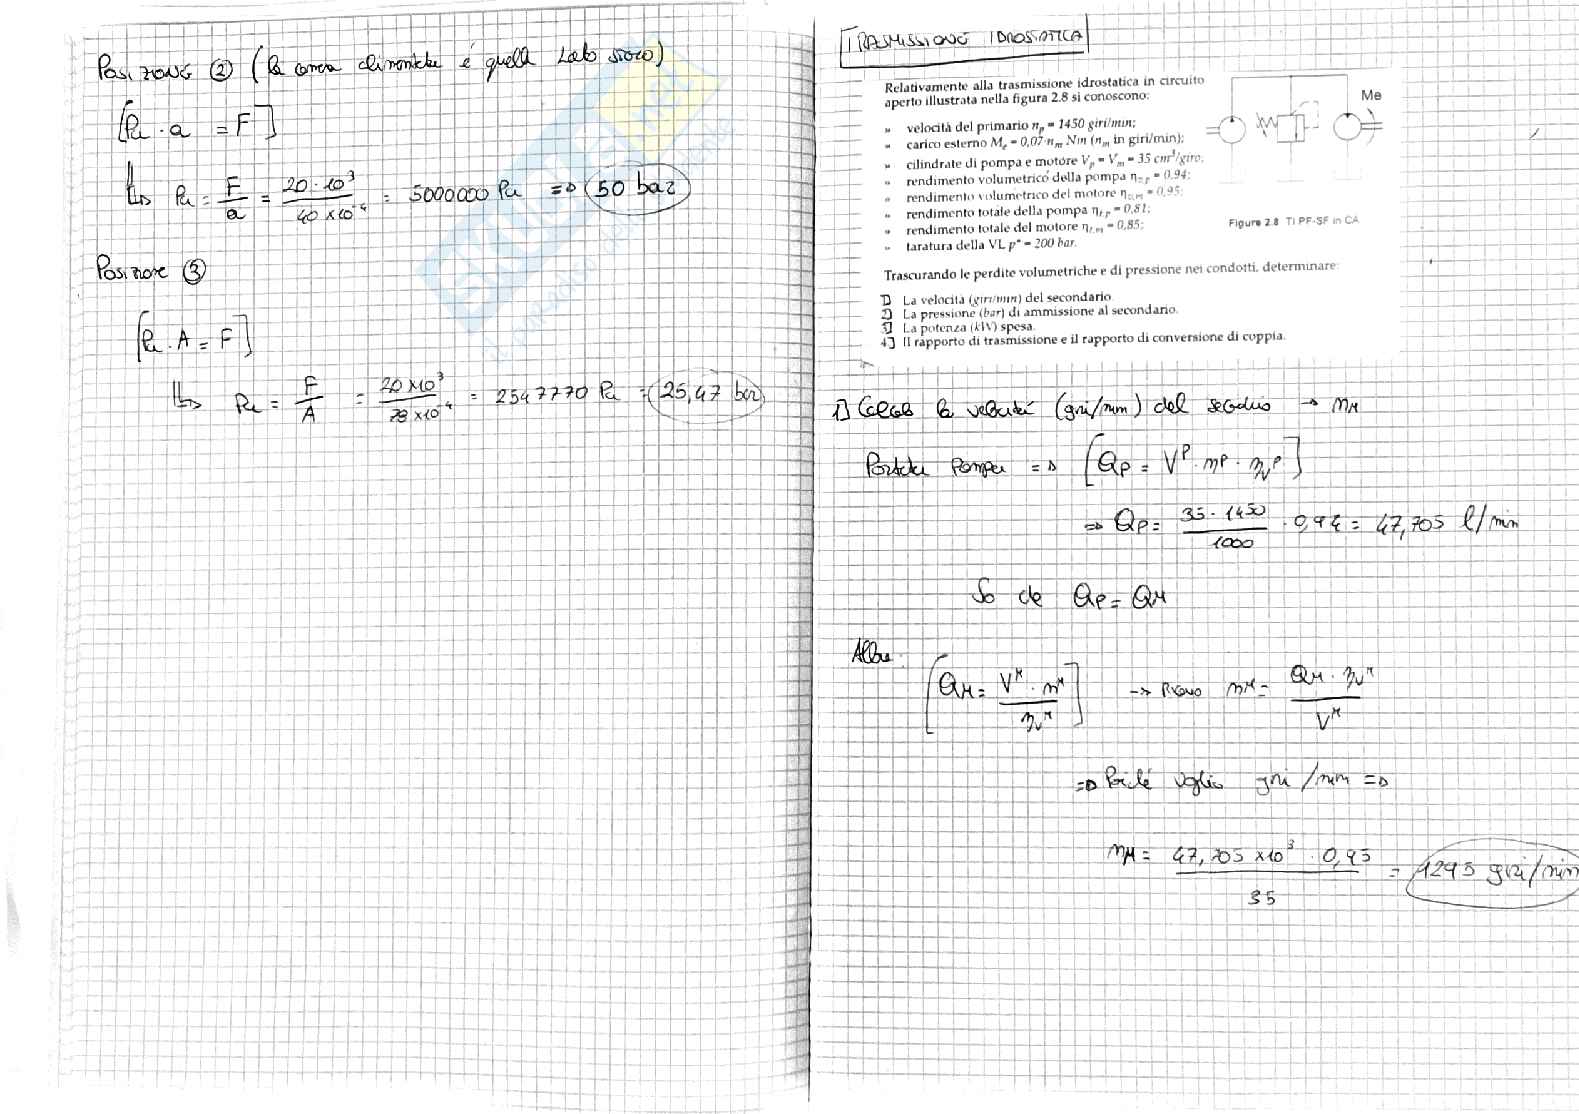 POSIZIONE ② (la camera alimentata è quella lato stelo)
[Pu · a = F]
↳ Pu = F/a = 20·10³ / 40×10⁻⁴ = 5000000 Pa ⇒ 50 bar
Posizione ③
[Pu · A = F]
↳ Pu = F/A = 20×10³ / 78×10⁻⁴ = 2547770 Pa = 25,47 bar
SKUOLA.net
TRASMISSIONE IDROSTATICA
Relativamente alla trasmissione idrostatica in circuito
aperto illustrata nella figura 2.8 si conoscono:
» velocità del primario np = 1450 giri/min;
» carico esterno Me = 0,07·nm Nm (nm in giri/min);
» cilindrate di pompa e motore Vp = Vm = 35 cm³/giro;
» rendimento volumetrico della pompa ηv,p = 0,94;
» rendimento volumetrico del motore ηv,m = 0,95;
» rendimento totale della pompa ηt,p = 0,81;
» rendimento totale del motore ηt,m = 0,85;
» taratura della VL p* = 200 bar.
Me
Figure 2.8 TI PF-SF in CA
Trascurando le perdite volumetriche e di pressione nei condotti, determinare:
1] La velocità (giri/min) del secondario.
2] La pressione (bar) di ammissione al secondario.
3] La potenza (kW) spesa.
4] Il rapporto di trasmissione e il rapporto di conversione di coppia.
1] Calcolo la velocità (giri/min) del secondario → nM
Portata Pompa ⇒ [QP = Vᴾ · nᴾ · ηvᴾ]
⇒ QP = 35 · 1450 / 1000 · 0,94 = 47,705 l/min
So che QP = QM
Allora:
[QM = Vᴹ · nᴹ / ηvᴹ] → Ricavo nᴹ = QM · ηvᴹ / Vᴹ
⇒ Poiché voglio giri/min ⇒
nM = 47,705 ×10³ · 0,95 / 35 = 1295 giri/min